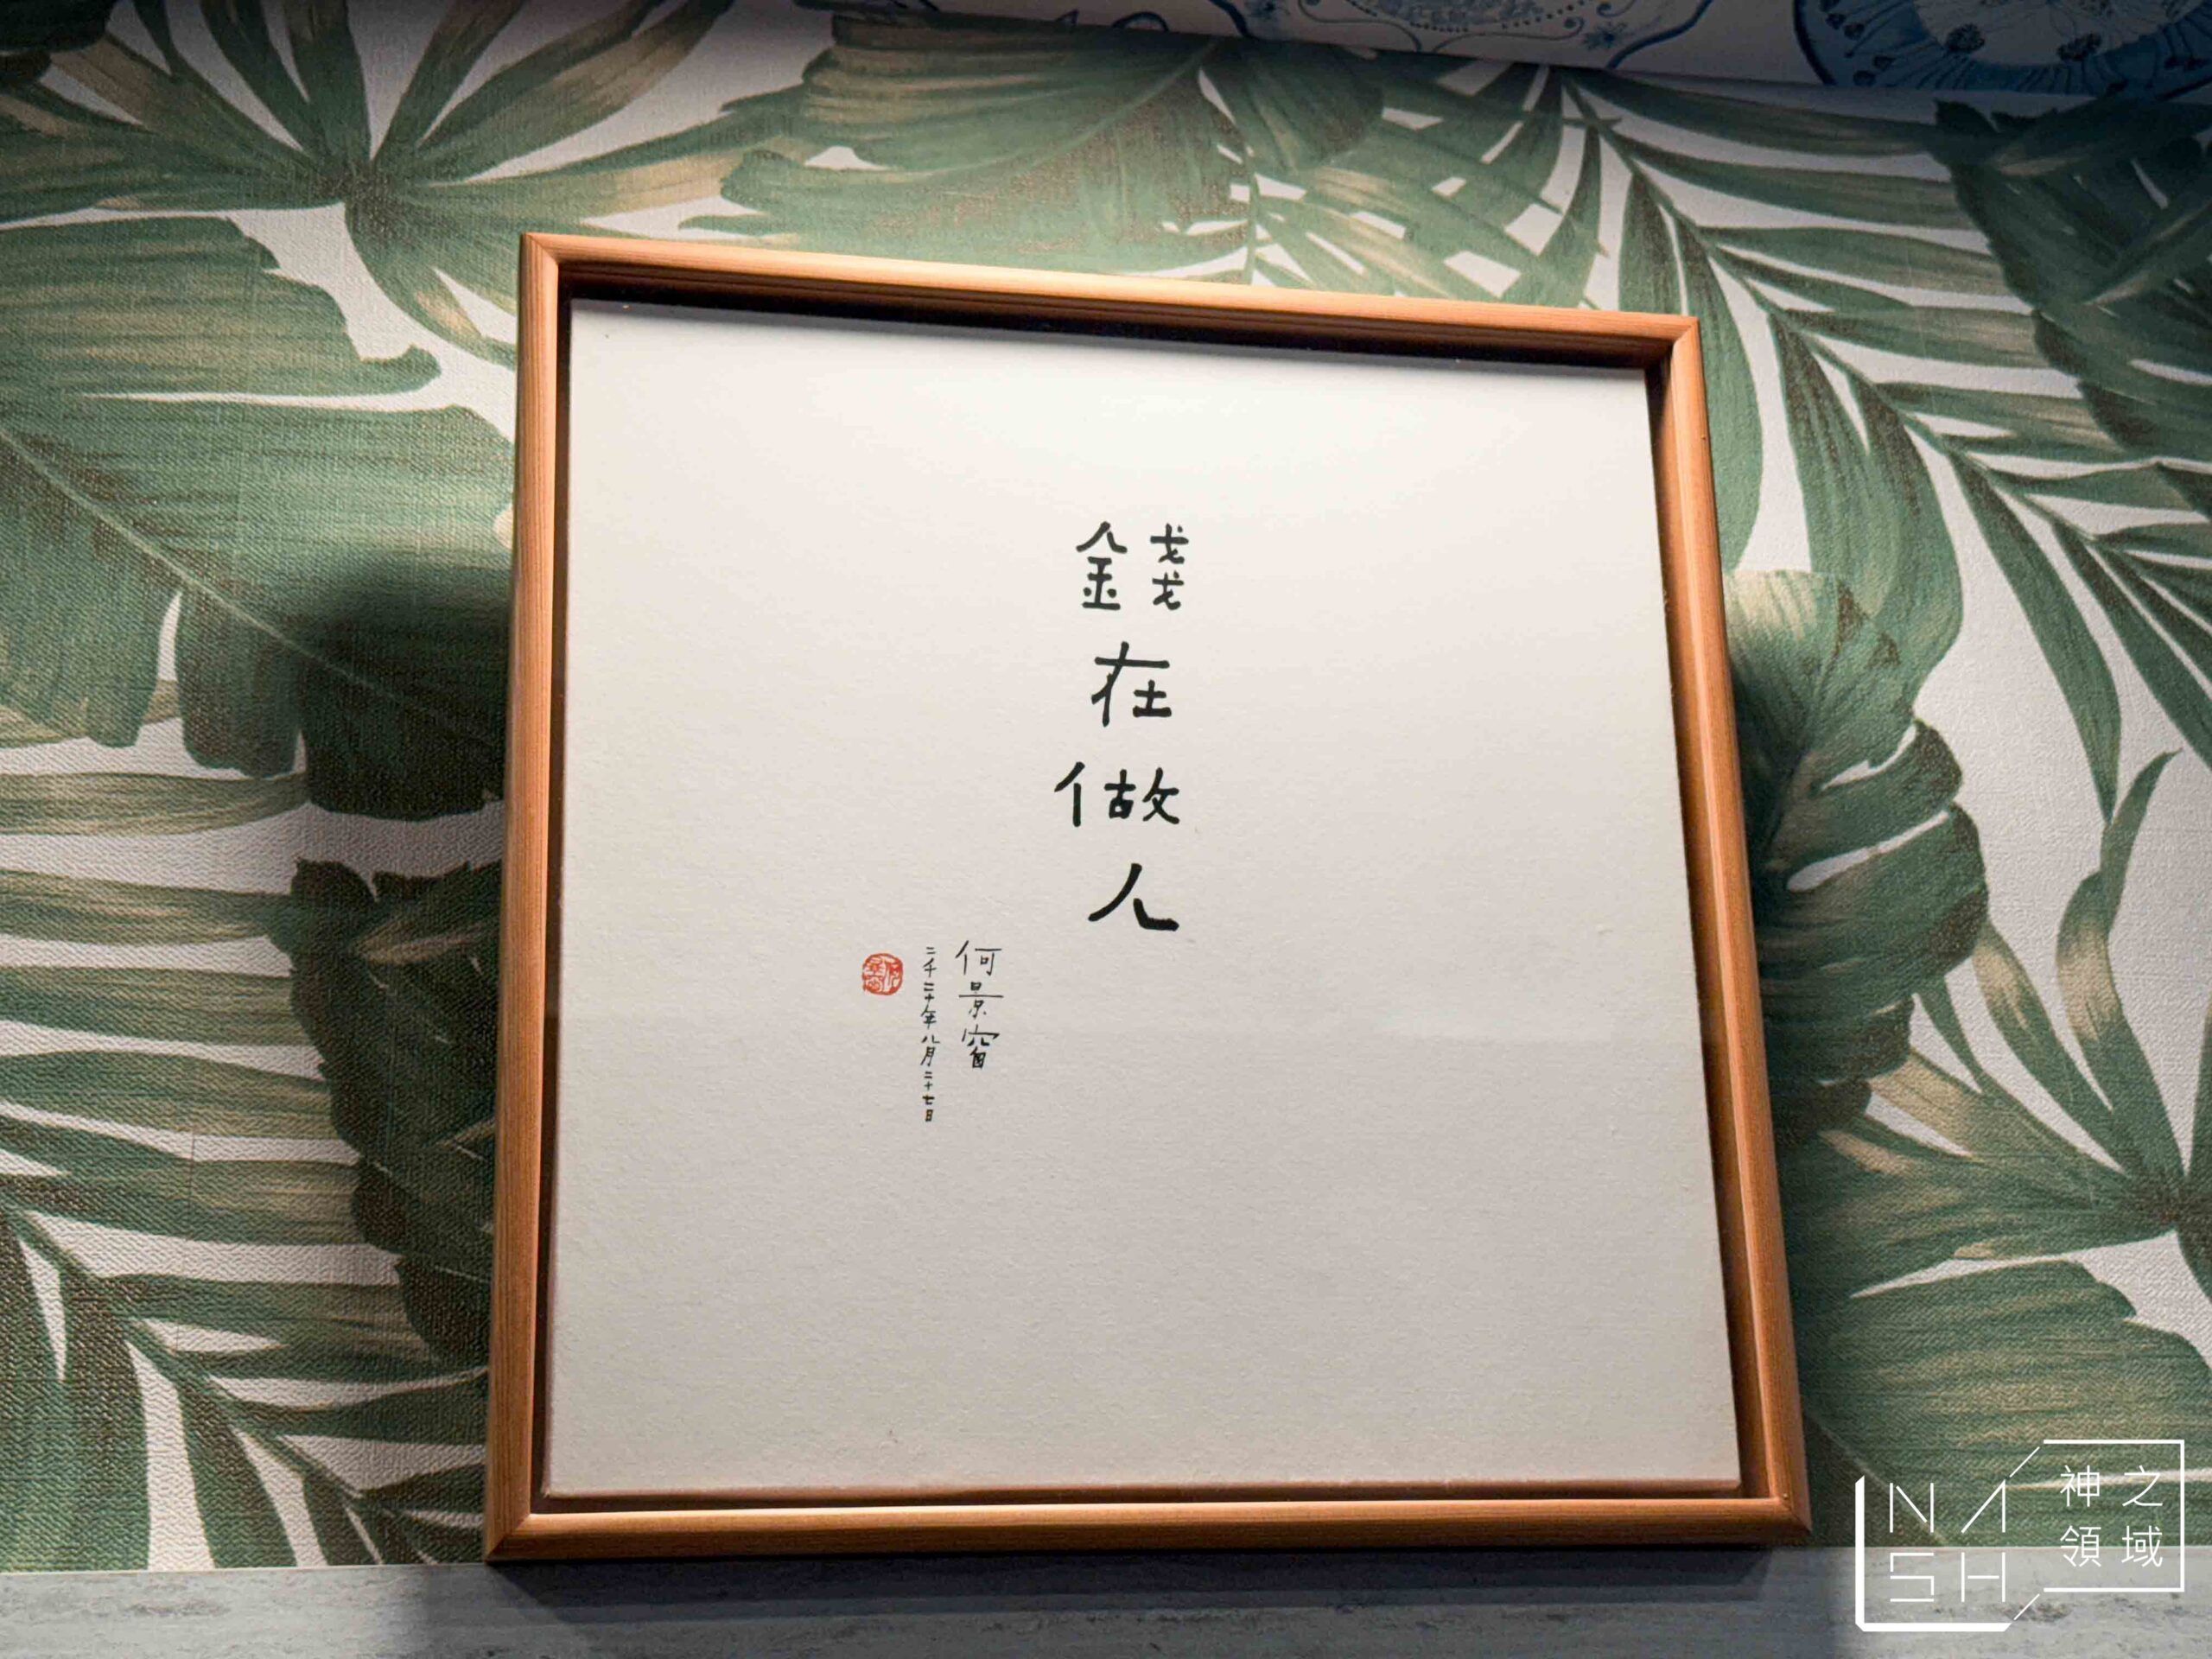 錢在做人
何景窗
二千二十年八月二十七日
NASH
神之領域